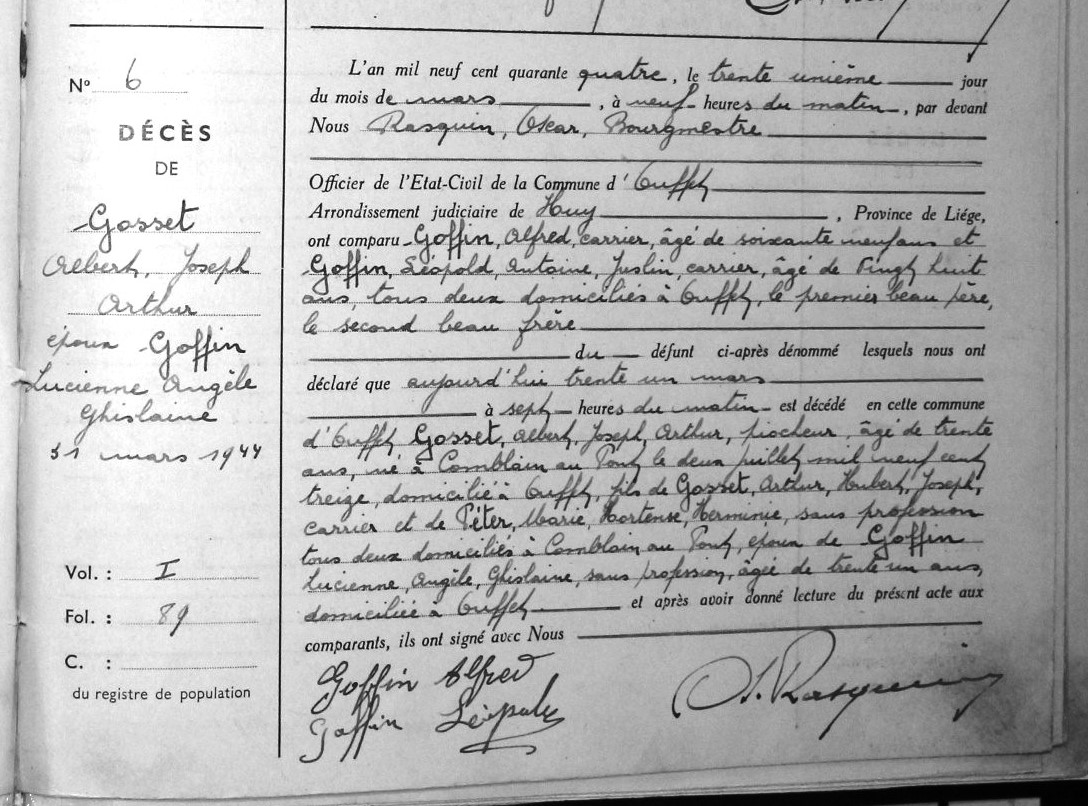 N° 6
DÉCÈS
DE
Gosset
Albert, Joseph
Arthur
époux Goffin
Lucienne Angèle
Ghislaine
31 mars 1944
Vol. : I
Fol. : 89
C. :
du registre de population
L'an mil neuf cent quarante quatre, le trente unième jour
du mois de mars, à neuf heures du matin, par devant
Nous Rasquin, Oscar, Bourgmestre
Officier de l'Etat-Civil de la Commune d'Ouffet
Arrondissement judiciaire de Huy, Province de Liége,
ont comparu Goffin, Alfred, carrier, âgé de soixante neuf ans et
Goffin, Léopold, Antoine, Justin, carrier, âgé de vingt huit
ans, tous deux domiciliés à Ouffet, le premier beau père,
le second beau frère
du défunt ci-après dénommé lesquels nous ont
déclaré que aujourd'hui trente un mars
à sept heures du matin est décédé en cette commune
d'Ouffet Gosset, Albert, Joseph, Arthur, piocheur, âgé de trente
ans, né à Comblain au Pont le deux juillet mil neuf cent
treize, domicilié à Ouffet, fils de Gosset, Arthur, Hubert, Joseph,
carrier et de Péter, Marie, Hortense, Herminie, sans profession
tous deux domiciliés à Comblain au Pont, époux de Goffin
Lucienne, Angèle, Ghislaine, sans profession, âgée de trente un ans,
domiciliée à Ouffet et après avoir donné lecture du présent acte aux
comparants, ils ont signé avec Nous
Goffin Alfred
Goffin Léopold
O. Rasquin